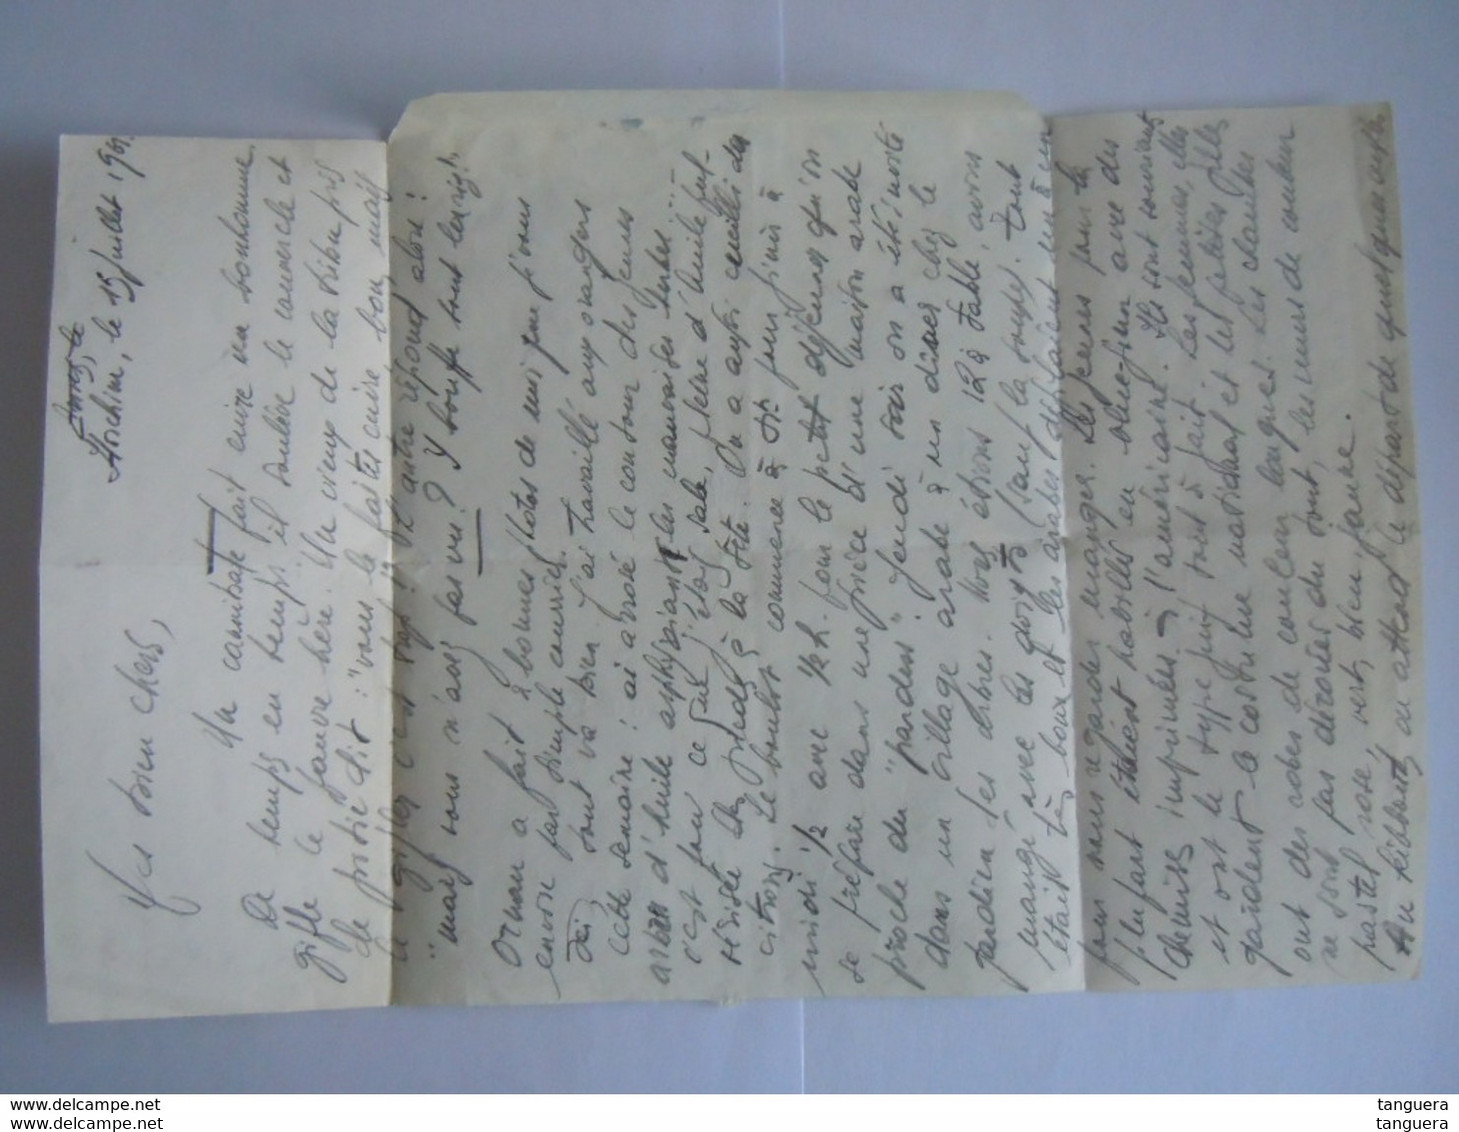 le 15 juillet 1969.
Mes bien chers,
Un cannibale fait cuire un bonhomme.
De temps en temps il soulève le couvercle et
gifle le pauvre hère. Un vieux de la tribu pris
de pitié dit : "vous le faites cuire, bon, mais
le gifler c'est trop !" L'autre répond alors :
"mais vous n'avez pas vu ? Y bouffe tout le riz !"
a fait 2 bonnes photos de moi que j'vous
envoie par simple courrier.
Ici, tout va bien. J'ai travaillé aux orangers
cette semaine : ai arrosé le contour des jeunes
arbres d'huile asphyxiant les mauvaises herbes...
c'est fou ce que j'étais sale, pleine d'huile
des pieds à la tête. On a aussi cueilli des
citrons. Le boulot commence à 5h pour finir à
midi 1/2 avec 1/2 h. pour le petit déjeuner qu'on
se prépare dans une pièce d'une maison arabe
proche du "pardess". Jeudi soir on a été invité
dans un village arabe à un dîner chez le
gardien des arbres. Nous étions 12 à table, avons
mangé avec les doigts (sauf la soupe). Tout
était très beau et les arabes défilaient un à un
pour nous regarder manger. Les jeunes pour la
plupart étaient habillés en blue-jean avec des
chemises imprimées à l'américaine. Ils sont souriants
et ont le type juif tout à fait. Les femmes, elles
gardent le costume national et les petites filles
ont des robes de couleur longues. Les chambres
ne sont pas décorées du tout, les murs de couleur
pastel rose, vert, bleu, jaune.
Au kibboutz on attend le départ de quelques
tanguera
tanguera
tanguera
tanguera